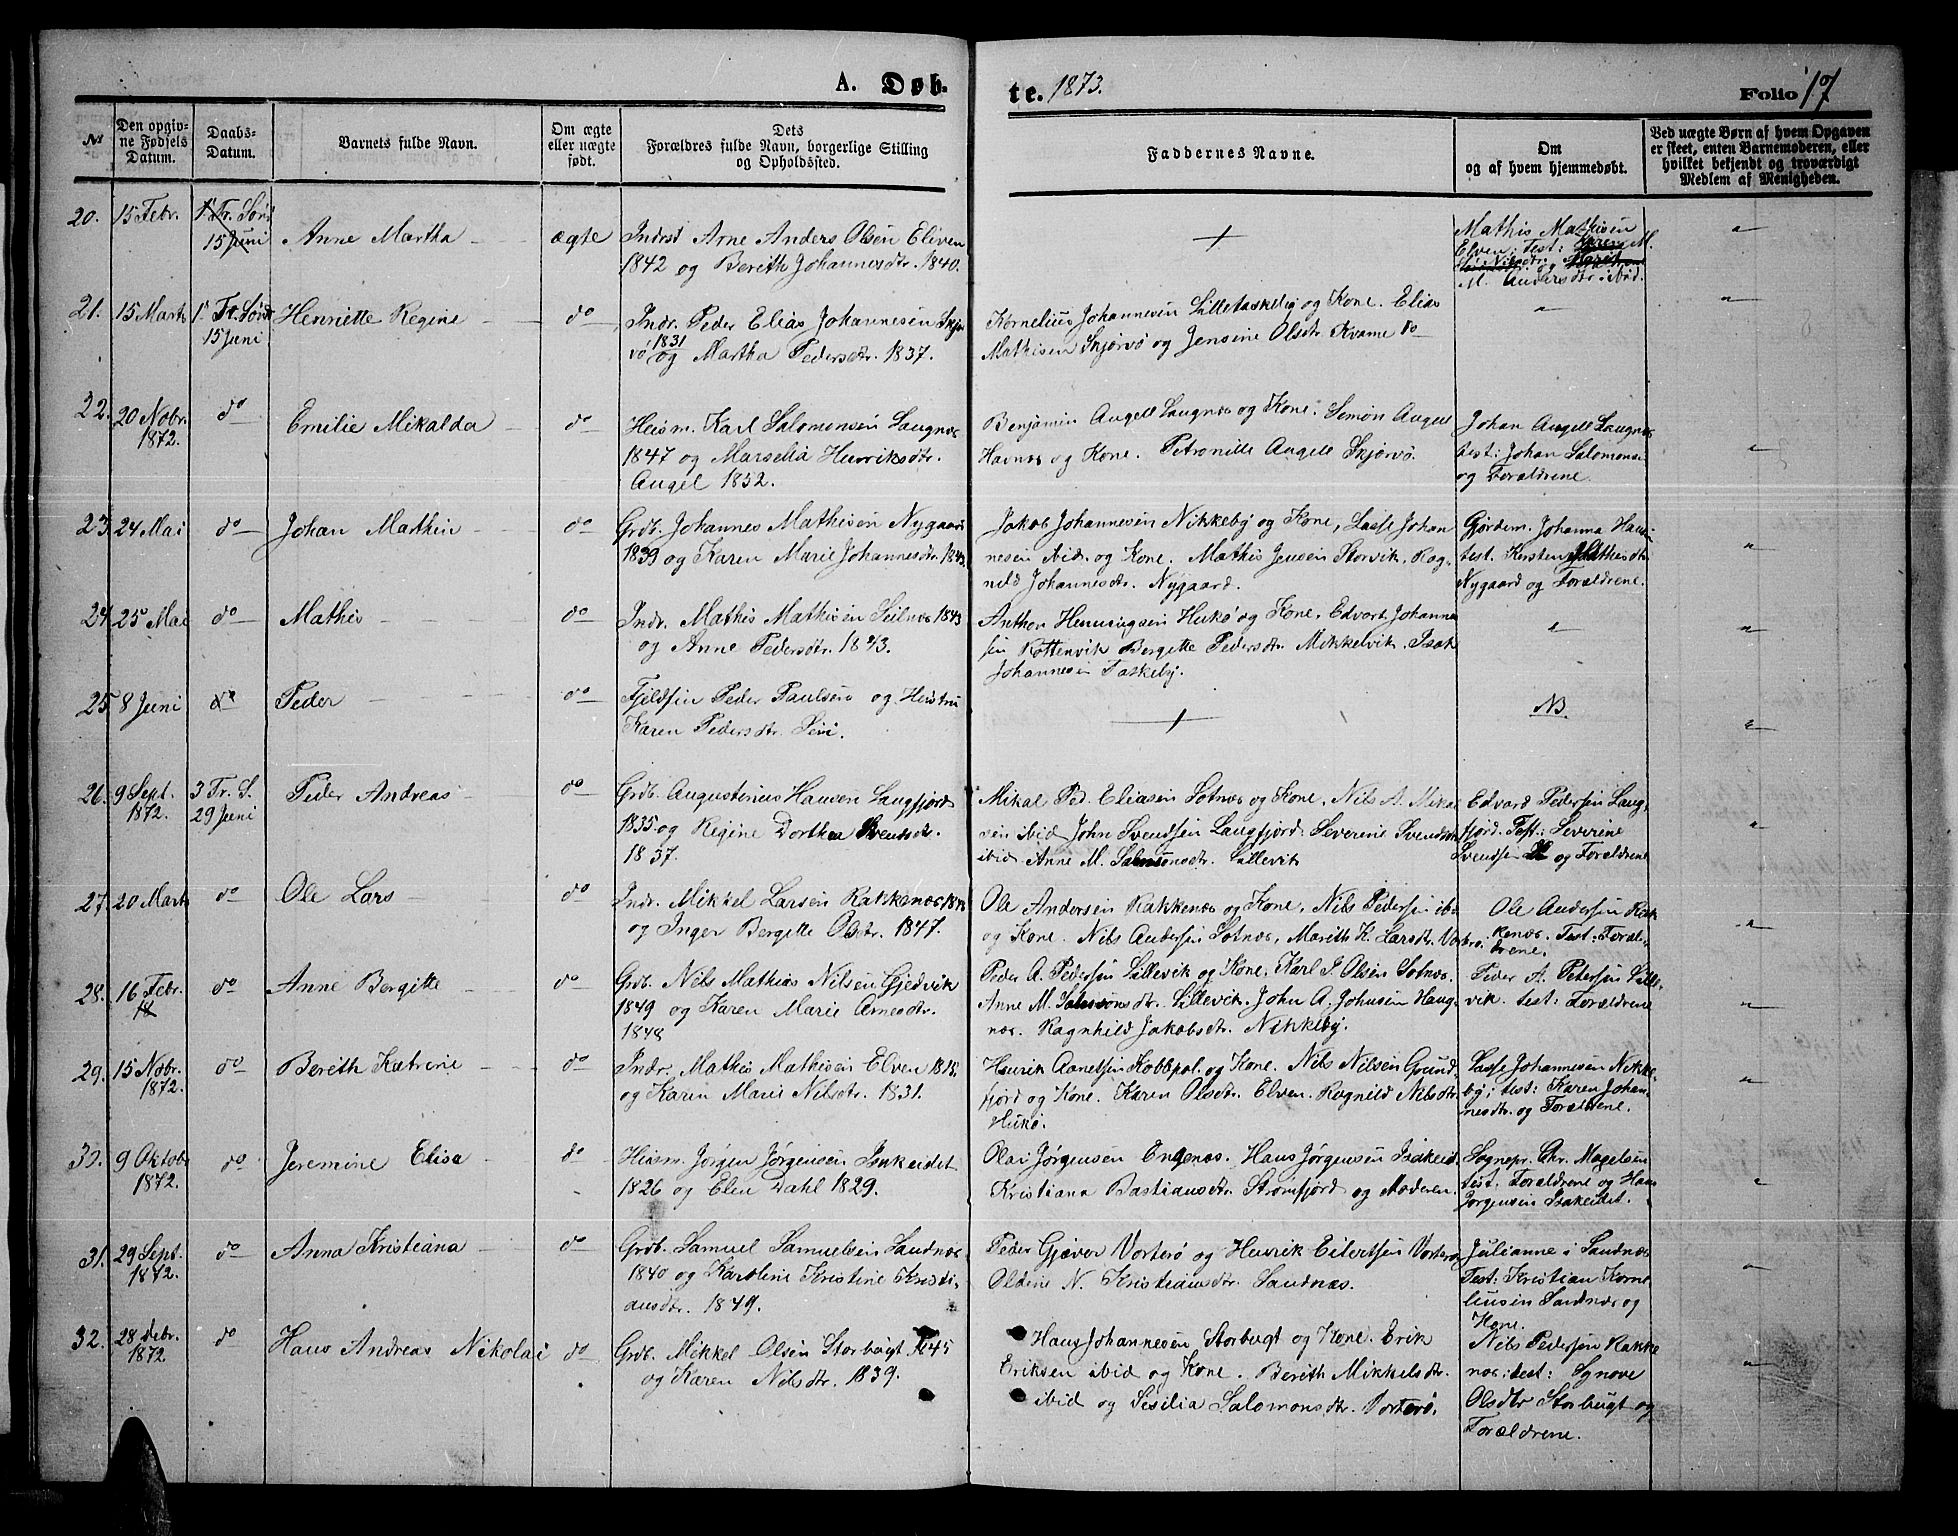 A. Døb-
te. 1873.
Folio 17
№
Den opgiv-
ne Fødsels
Datum.
Daabs-
Datum.
Barnets fulde Navn.
Om ægte
eller uægte
født.
Dets
Forældres fulde Navn, borgerlige Stilling
og Opholdssted.
Faddernes Navne.
Om
og af hvem hjemmedøbt.
Ved uægte Børn af hvem Opgaven
er skeet, enten Barnemoderen, eller
hvilket bekjendt og troværdigt
Medlem af Menigheden.
20.
15 Febr.
1' Tr. Sønd
15 Juni
Anne Martha
ægte
Indrst Arne Anders Olsen Elven
1842 og Berith Johannesdtr. 1840.
+
Mathis Mathisen
Elven: test: Karen M.
Nilsdtr. og
M. Andersdtr ibid.
21.
15 Marts
1' Tr. Sønd
15 Juni
Henriette Regine
do
Indr. Peder Elias Johannesen Skjer
vö 1831 og Martha Pedersdtr. 1837.
Kornelius Johannesen Lilletaskeby og Kone. Elias
Mathisen Skjervö og Jensine Olsdtr. Kvame do
22.
20 Nobr.
1872.
do
Emilie Mikalda
do
Huusm. Karl Salomonsen Laugnes
1847 og Marselia Henriksdtr.
Angel 1852.
Benjamin Angell Laugnes og Kone. Simon Angell
Havnes og Kone. Petronille Angell Skjervö.
Johan Angell Laugnes
test: Johan Salomons
og Forældrene.
23.
24 Mai
do
Johan Mathin
do
Grdb. Johannes Mathisen Nygaard
1839 og Karen Marie Johannesdtr. 1843.
Jakob Johannesen Nikkeby og Kone, Lasse Johan
nesen ibid. og Kone. Mathis Jensen Storvik, Rag-
nild Johannesdtr. Nygaard.
Gjordem. Johanna Hans
test. Kersten Mathisdtr
Nygaard og Forældrene.
24.
25 Mai
do
Mathis
do
Indr. Mathis Mathisen Seilnes 1843
og Anne Pedersdtr. 1843.
Anthon Henningsen Hukö og Kone, Edvart Johanne
sen Rottenvik Bergitte Pedersdtr. Mikkelvik. Isak
Johannesen Taskeby.
25.
8 Juni
do
Peder
do
Fjeldfin Peder Paulsen og Hustru
Karen Pedersdtr.
+
NB.
26.
9 Sept.
1872.
3 Tr. S.
29 Juni
Peder Andreas
do
Grdb. Augustinus Hansen Laugfjord
1835 og Regine Dorthea Svendsdtr.
1837.
Mikal Ped. Eliasen Sotnes og Kone, Nils A. Mikal
sen ibid John Svendsen Laugfjord. Severine Svendsdtr
ibid. Anne M. Samsonsdtr. Lillevik
Edvard Pedersen Laug-
fjord. Test.: Severine
Svendsen og Forældrene
27.
20 Marts
do
Ole Lars
do
Indr. Mikkel Larsen Rakkenes
og Inger Bergitte Olsdtr. 1847.
Ole Andersen Rakkenes og Kone, Nils Pedersen ibid
og Kone. Nils Andersen Sotnes, Marith K. Larsdtr.
Ole Andersen Rak
kenes. Test: Foræl-
drene.
28.
16 Febr.
18
do
Anne Bergitte
do
Grdb. Nils Mathias Nilsen Gjedvik
1849 og Karen Marie Arnesdtr.
1848
Peder A. Pedersen Lillevik og Kone. Karl J. Olsen Sotnes.
Anne M. Samsonsdtr. Lillevik. John A. Johnsen Haug-
nes. Ragnhild Jakobsdtr. Nikkeby.
Peder A. Petersen Lille-
vik. test: Forældrene
29.
15 Nobr.
1872.
do
Bereth Katrine
do
Indr. Mathis Mathisen Elven 1818.
og Karen Marie Nilsdtr. 1831.
Henrik Kobbpol. og Kone. Nils Nilsen Grund-
fjord og Kone. Karen Olsdtr. Elven. Ragnild Nilsdtr
Hukö.
Lasse Johannesen Nikke-
by; test: Karen Johan-
nesdtr. og Forældrene.
30.
9 Oktobr
1872.
do
Jeremine Elisa
do
Huusm. Jörgen Jörgensen Isakeidet
1826 og Elen Dahl 1829.
Olai Jörgensen Engenes. Hans Jörgensen Isakeid.
Kristiana Bastiansdtr. Stromfjord og Moderen.
Sognepr. Chr. Magelsen
test. Forældrene og Hans
Jørgensen Isakeidet.
31.
29 Sept.
1872.
do
Anna Kristiana
do
Grdb. Samuel Samuelsen Sandnes
1840 og Karoline Kristine Kristi-
ansdtr. 1849.
Peder Gjæver Vorterö og Henrik Eilertsen Vorterö
Oldine N. Kristiansdtr. Sandnæs.
Julianne i Sandnes
Test: Kristian Korne
liusen Sandnes og
Kone.
32.
28 Febr.
1872
do
Hans Andreas Nikolai
do
Grdb. Mikkel Olsen Storbugt 1845
og Karen Nilsdtr. 1839.
Hans Johannesen Storbugt og Kone. Erik
Eriksen ibid og Kone. Bereth Mikkelsdtr.
ibid og Sesilia Salomonsdtr. Vorterö.
Nils Pedersen Rakke
nes: test: Synove
Olsdtr Storbugt og
Forældrene.